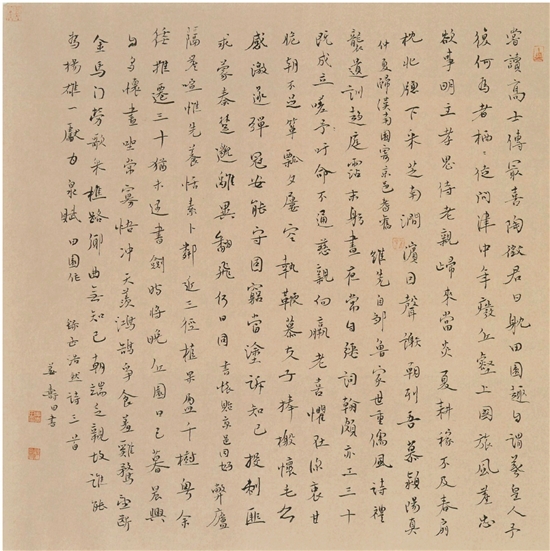 嘗讀高士傳最喜陶徵君日耽田園趣自謂羲皇人予
復何為者栖徒問津中年廢丘壑上國旅風塵忠
欲事明主孝思侍老親歸來當炎夏耕稼不及春扇
枕北牖下采芝南澗濱因聲謝朝列吾慕潁陽真
仲夏歸漢南園寄京邑耆舊 維先自鄒魯家世重儒風詩禮
襲遺訓趨庭霑末躬晝夜常自強詞翰頗亦工三十
既成立嗟吁命不通慈親向羸老喜懼在深衷甘
脆朝不足簞瓢夕屢空執鞭慕夫子捧檄懷毛公
感激遂彈冠安能守固窮當塗訴知己投刺匪
求蒙秦楚邈離異翻飛何日同 書懷貽京邑同好 弊廬
隔塵喧惟先養恬素卜鄰近三徑植果盈千樹粵余
任推遷三十猶未遇書劍時將晚丘園日已暮晨興
自多懷晝坐常寡悟沖天羨鴻鵠爭食羞雞鶩望斷
金馬門勞歌采樵路鄉曲無知己朝端乏親故誰能
為揚雄一薦甘泉賦 田園作 錄孟浩然詩三首
姜壽田書